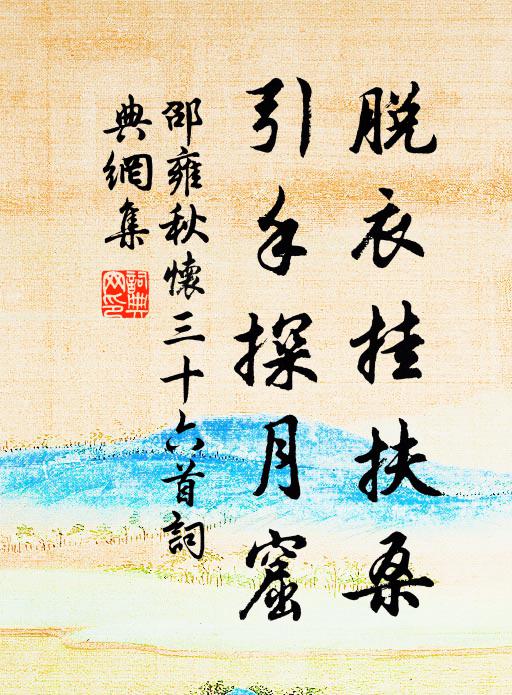 脫衣挂扶桑
引手探月窟
邵雍秋懷三十六首詞
典網集
詞典网印